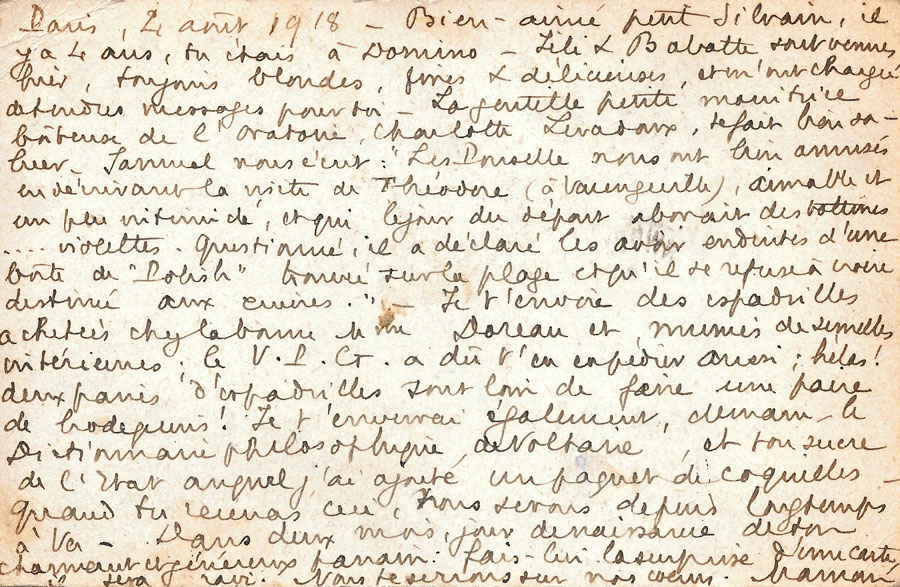 Paris, 2 août 1918 - Bien-aimé petit Silvain, il
y a 4 ans, tu étais à Domino - Lili & Babette sont venues
hier, toujours blondes, fines & délicieuses, et m'ont chargée
de tendres messages pour toi - La gentille petite monitrice
boiteuse de l'Oratoire, Charlotte Levadoux, te fait bon sa-
luer. Samuel nous écrit : "Les Pouselle nous ont bien amusés
en décrivant la visite de Théodore (à Varengeville), aimable et
un peu intimidé, et qui le jour du départ arborait des bottines
.... violettes. Questionné, il a déclaré les avoir enduites d'une
boîte de "Polish" trouvée sur la plage et qu'il se refuse à croire
destiné aux cuivres." - Je t'envoie des espadrilles
achetées chez la bonne Mme Doreau et munies de semelles
intérieures ; le V. P. G. a dû t'en expédier aussi ; hélas !
deux paires d'espadrilles sont loin de faire une paire
de brodequins ! Je t'enverrai également, demain - le
Dictionnaire philosophique de Voltaire, et ton sucre
de l'Etat auquel j'ai ajouté un paquet de coquilles -
quand tu recevras ceci, nous serons depuis longtemps
à Va - Dans deux mois, jour de naissance de ton
charmant et généreux parrain. Fais-lui la surprise d'une carte
il sera ravi. Nous te serrons sur nos cœurs. Maman